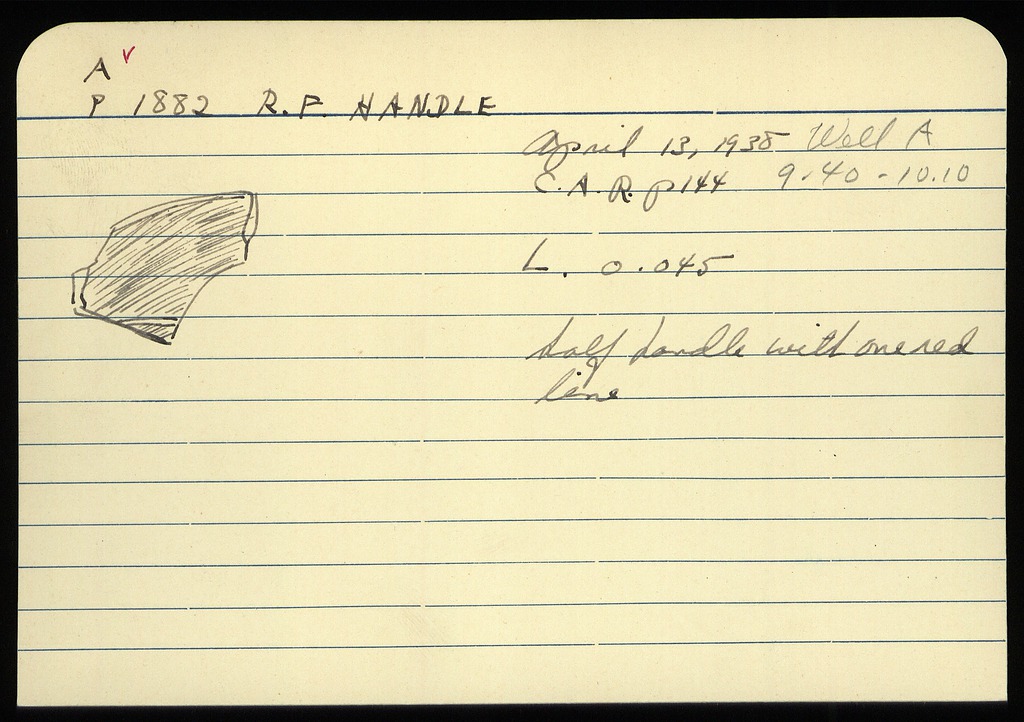 A
P 1882 R.F. HANDLE
April 13, 1938 Well A
C.A.R. p144 9.40 - 10.10
L. 0.045
half handle with one red
line